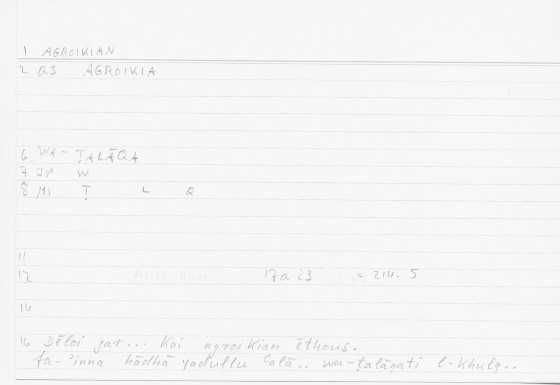 1 AGROIKIAN
2 Q3 AGROIKIA
6 WA- ṬALĀQA
7 JP W
8 M1 Ṭ L Q
11
12 Arist Rhet 17a23 = 214.5
14
16 Dēloi gar... kai agroikian ēthous.
fa-'inna hādhā yadullu ʿalā.. wa-ṭalāqati l-khulq..